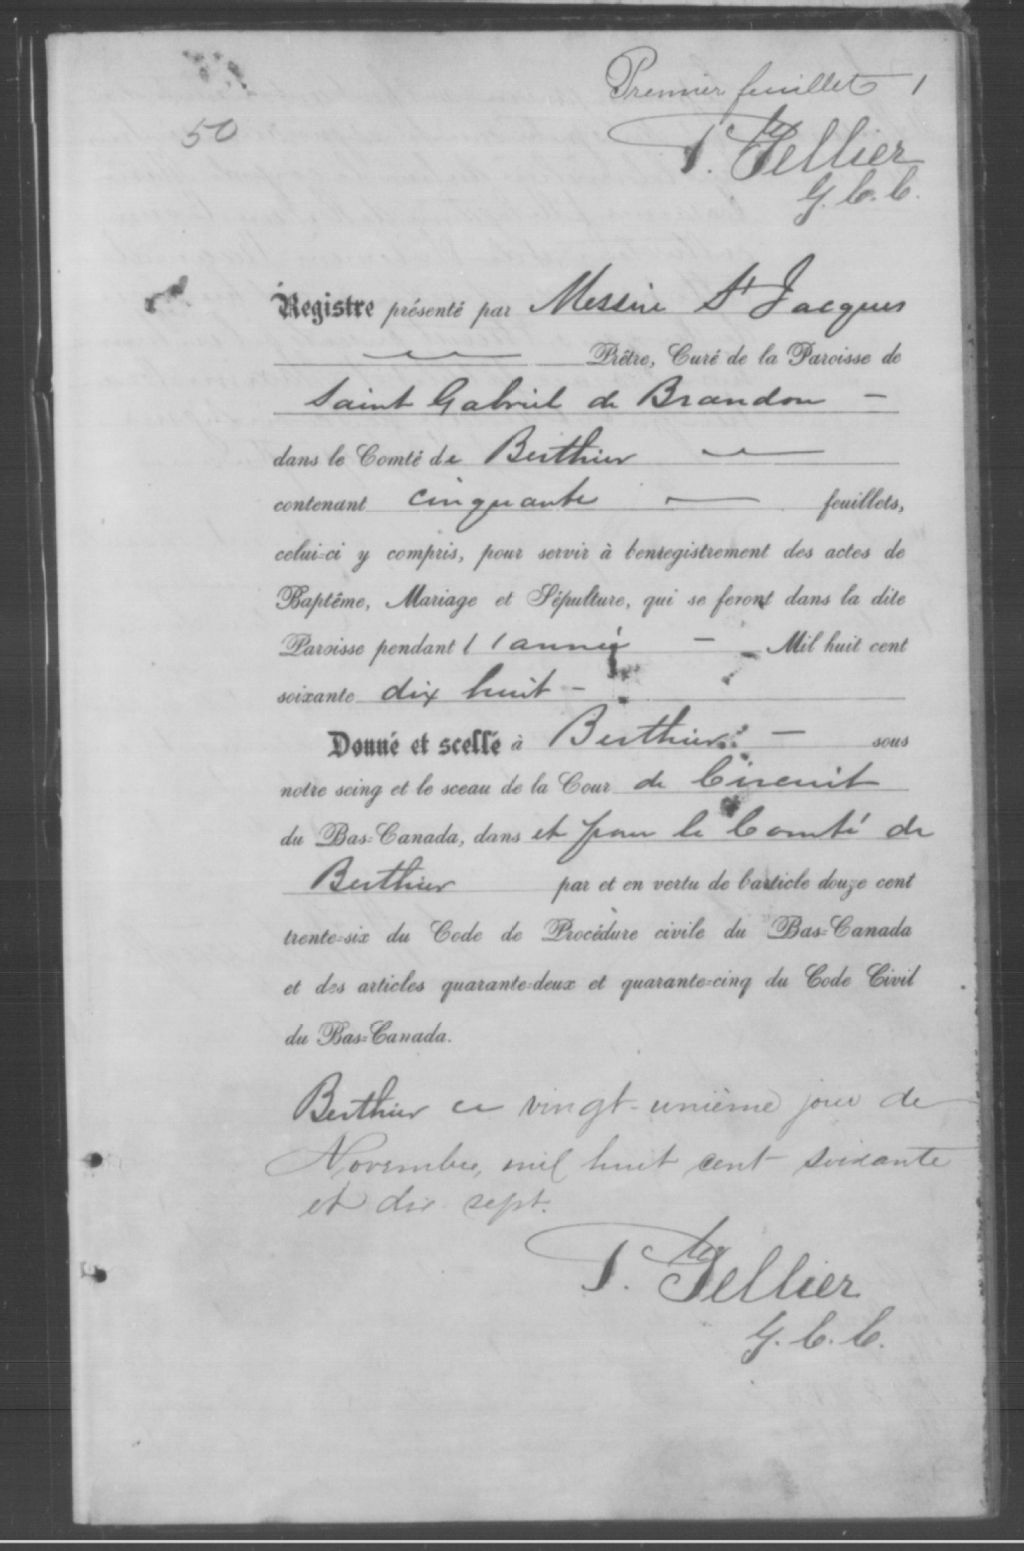 Premier feuillet 1
50
P. Tellier
G. C. C.
Registre présenté par Messire St Jacques
Prêtre, Curé de la Paroisse de
Saint Gabriel de Brandon -
dans le Comté de Berthier
contenant cinquante feuillets,
celui-ci y compris, pour servir à l'enregistrement des actes de
Baptême, Mariage et Sépulture, qui se feront dans la dite
Paroisse pendant l'année - Mil huit cent
soixante dix huit -
Donné et scellé à Berthier - sous
notre seing et le sceau de la Cour de Circuit
du Bas-Canada, dans et pour le Comté de
Berthier par et en vertu de l'article douze cent
trente-six du Code de Procédure civile du Bas-Canada
et des articles quarante-deux et quarante-cinq du Code Civil
du Bas-Canada.
Berthier ce vingt-unième jour de
Novembre, mil huit cent soixante
et dix sept.
P. Tellier
G. C. C.